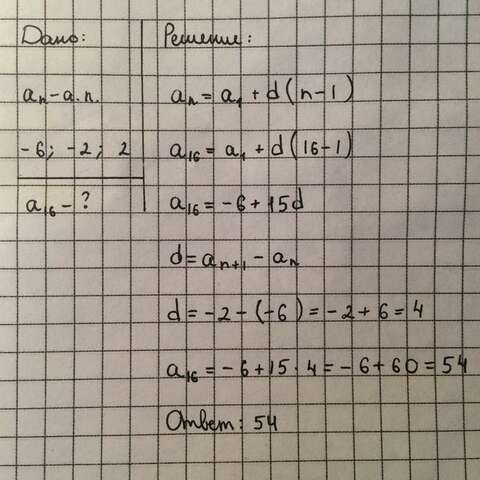 Дано:
aₙ – а.п.
-6; -2; 2
a₁₆ – ?
Решение:
aₙ = a₁ + d(n-1)
a₁₆ = a₁ + d(16-1)
a₁₆ = -6 + 15d
d = aₙ₊₁ - aₙ
d = -2 - (-6) = -2 + 6 = 4
a₁₆ = -6 + 15 · 4 = -6 + 60 = 54
Ответ: 54